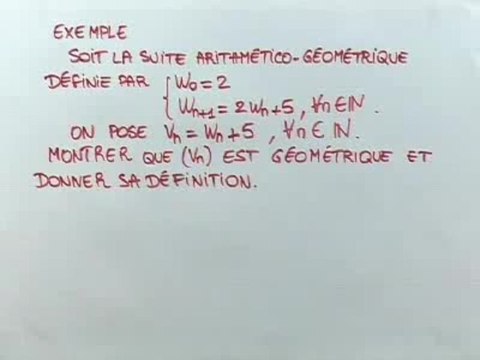 EXEMPLE
SOIT LA SUITE ARITHMÉTICO-GÉOMÉTRIQUE
DÉFINIE PAR { W₀ = 2
Wₙ₊₁ = 2Wₙ + 5, ∀n∈ℕ.
ON POSE Vₙ = Wₙ + 5, ∀n∈ℕ.
MONTRER QUE (Vₙ) EST GÉOMÉTRIQUE ET
DONNER SA DÉFINITION.